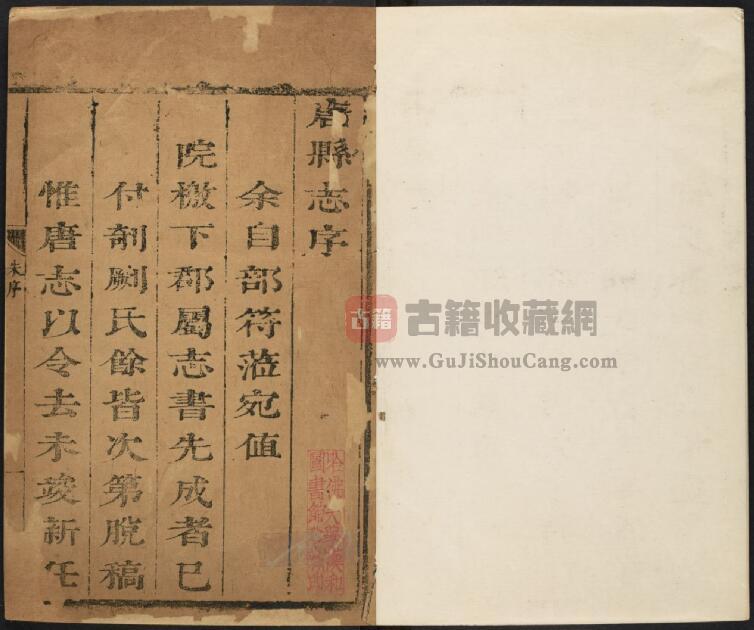 唐縣志序
余自部符蒞宛值
院檄下郡屬志書先成者已
付剞劂氏餘皆次第脫稿
惟唐志以令去未竣新任
朱序
古籍
古籍收藏網
www.GuJiShouCang.com